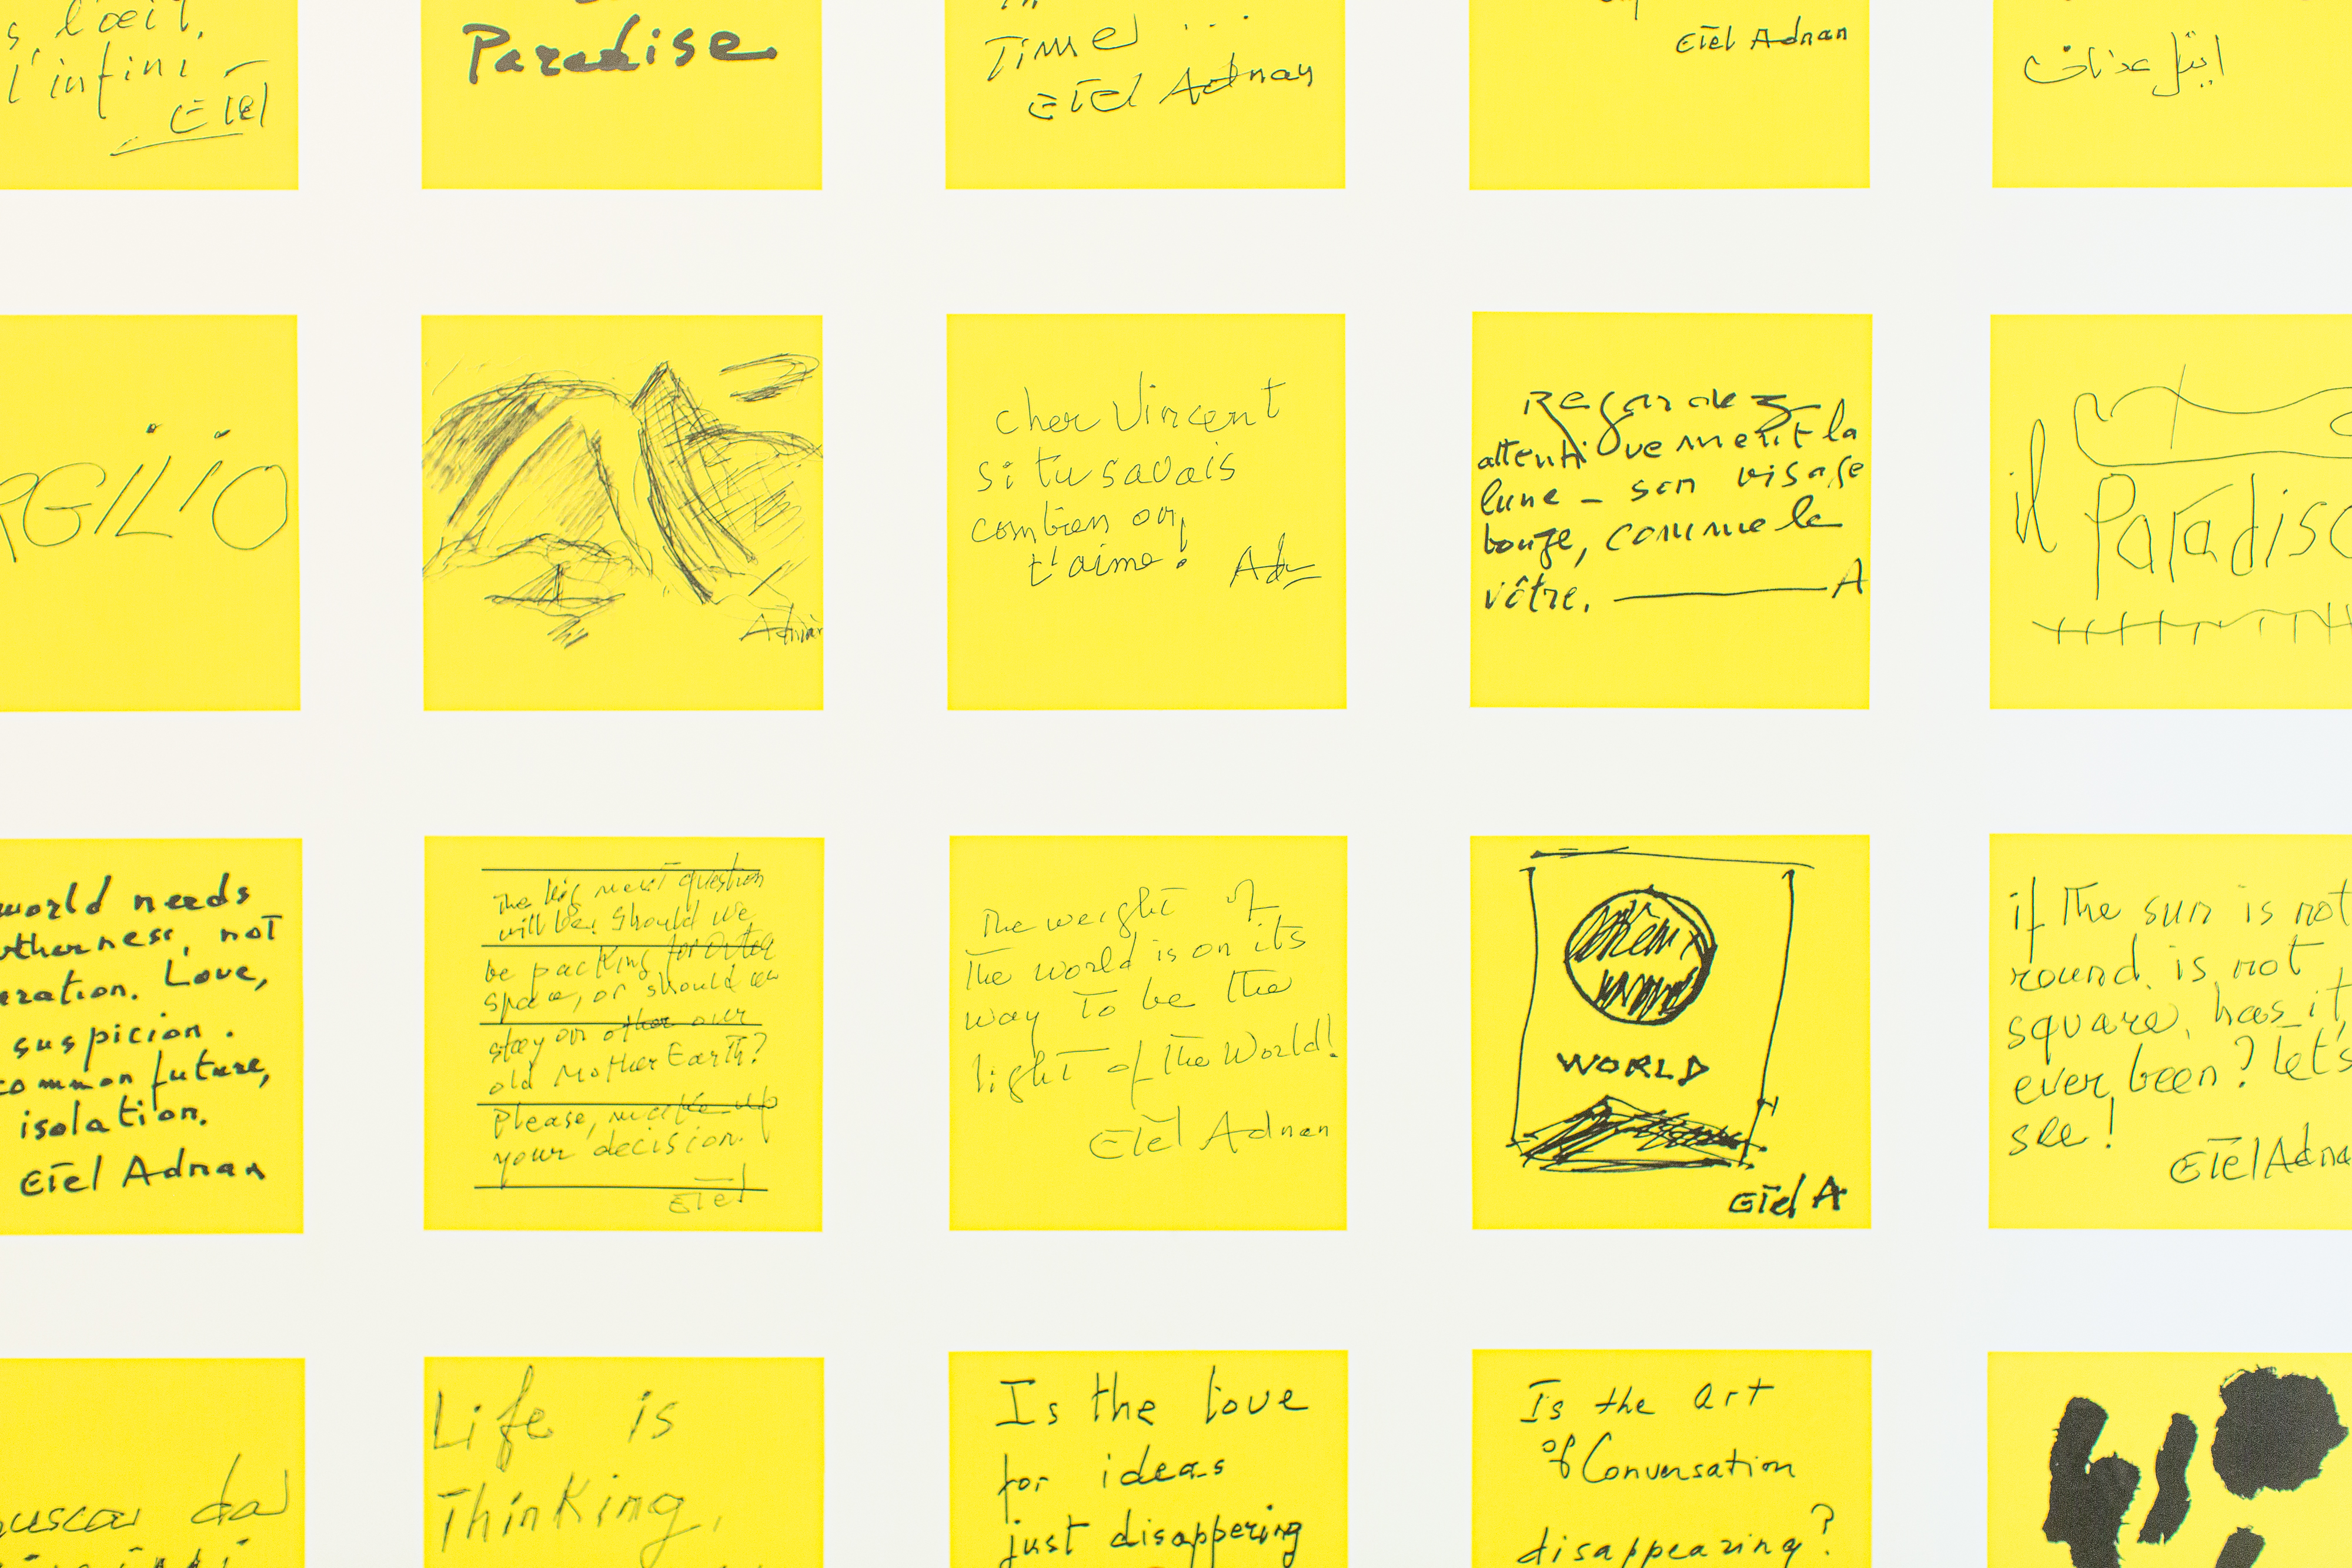 s l'œil,
l'infini
Etel
Paradise
Time ...
Etel Adnan
Etel Adnan
ايتل عدنان
RGILIO
Adnan
cher Vincent
si tu savais
combien on
t'aime!
Ad
Regardez
attentivement la
lune – son visage
bouge, comme le
vôtre. A
il
Paradiso
world needs
not
eration. Love,
suspicion.
common future,
isolation.
Etel Adnan
The big next question
will be: Should we
be packing for Outer
space, or should we
stay on other our
old Mother Earth?
Please, make up
your decision.
Etel
The weight of
the world is on its
way to be the
light of the World!
Etel Adnan
WORLD
Etel A
if the sun is not
round, is not
square, has it
ever been? Let's
see!
Etel Adna
dal
Life is
Thinking,
Is the love
for ideas
just disappering
Is the Art
of Conversation
disappearing?